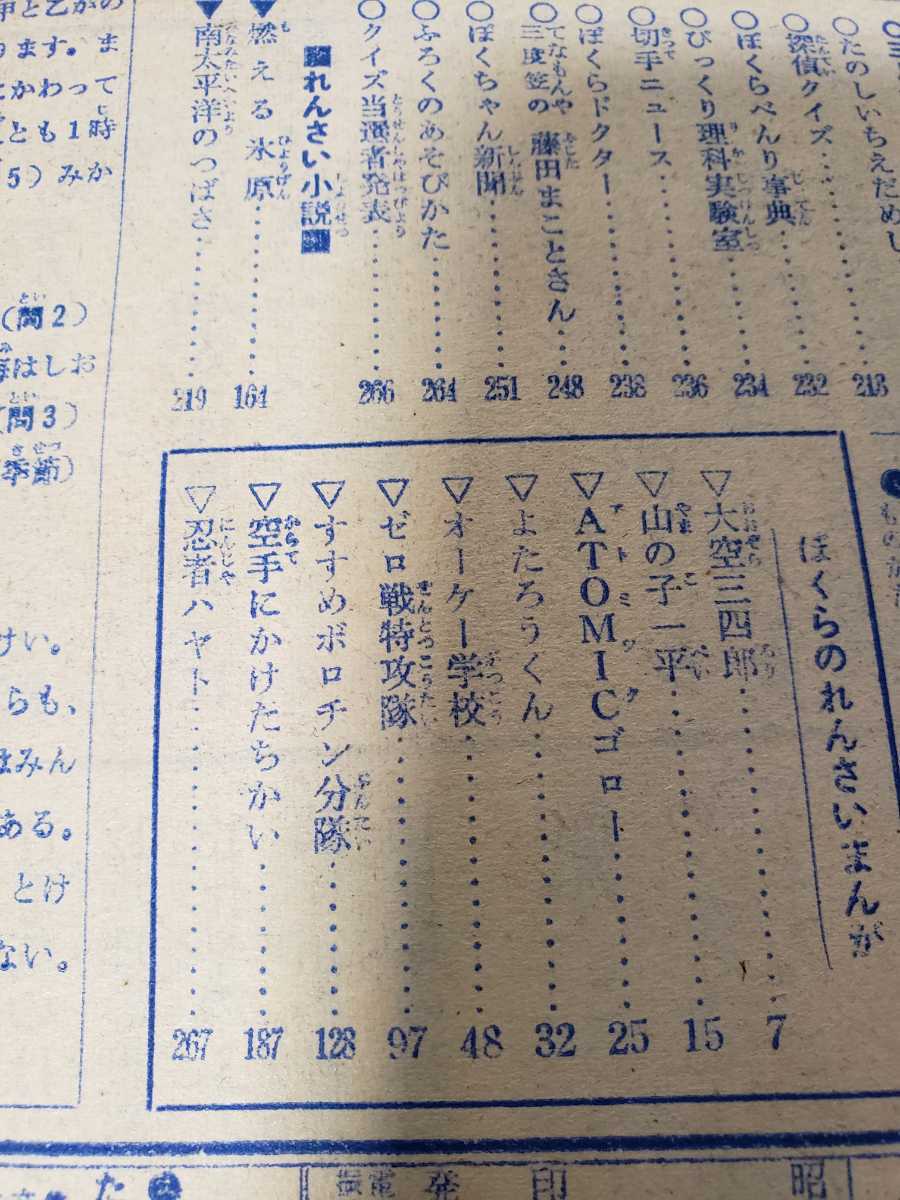 たのしいちえだめし 213
探偵クイズ 232
ぼくらべんり事典 234
びっくり理科実験室 236
切手ニュース 238
ぼくらドクター
てなもんや三度笠の 藤田まことさん 248
ぼくちゃん新聞 251
ふろくのあそびかた 264
クイズ当選者発表 266
■れんさい小説■
▼燃える氷原 164
▼南太平洋のつばさ 219
ぼくらのれんさいまんが
▽大空三四郎 7
▽山の子一平 15
▽ATOMICゴロー 25
▽よたろうくん 32
▽オーケー学校 48
▽ゼロ戦特攻隊 97
▽すすめボロチン分隊 128
▽空手にかけたちかい 187
▽忍者ハヤト 267
甲と乙がの
ります。ま
かわって
とも1時
5)みか
(問2)
海はしお
(問3)
季節)
けい。
らも、
はみん
ある。
とけ
ない。
発
印
昭